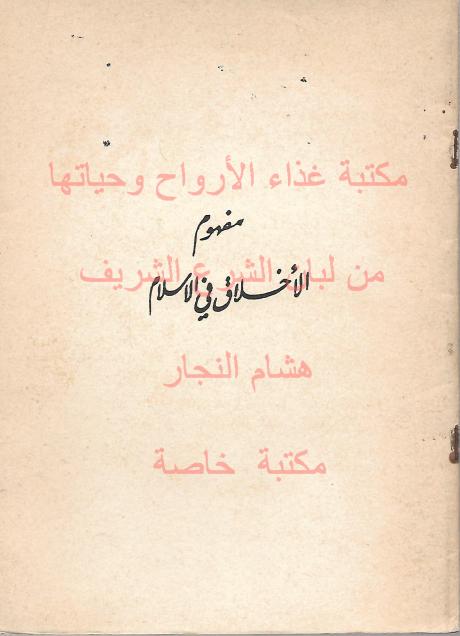 مكتبة غذاء الأرواح وحياتها
مفهوم
من لبان الشرع الشريف
الأخلاق في الاسلام
هشام النجار
مكتبة خاصة